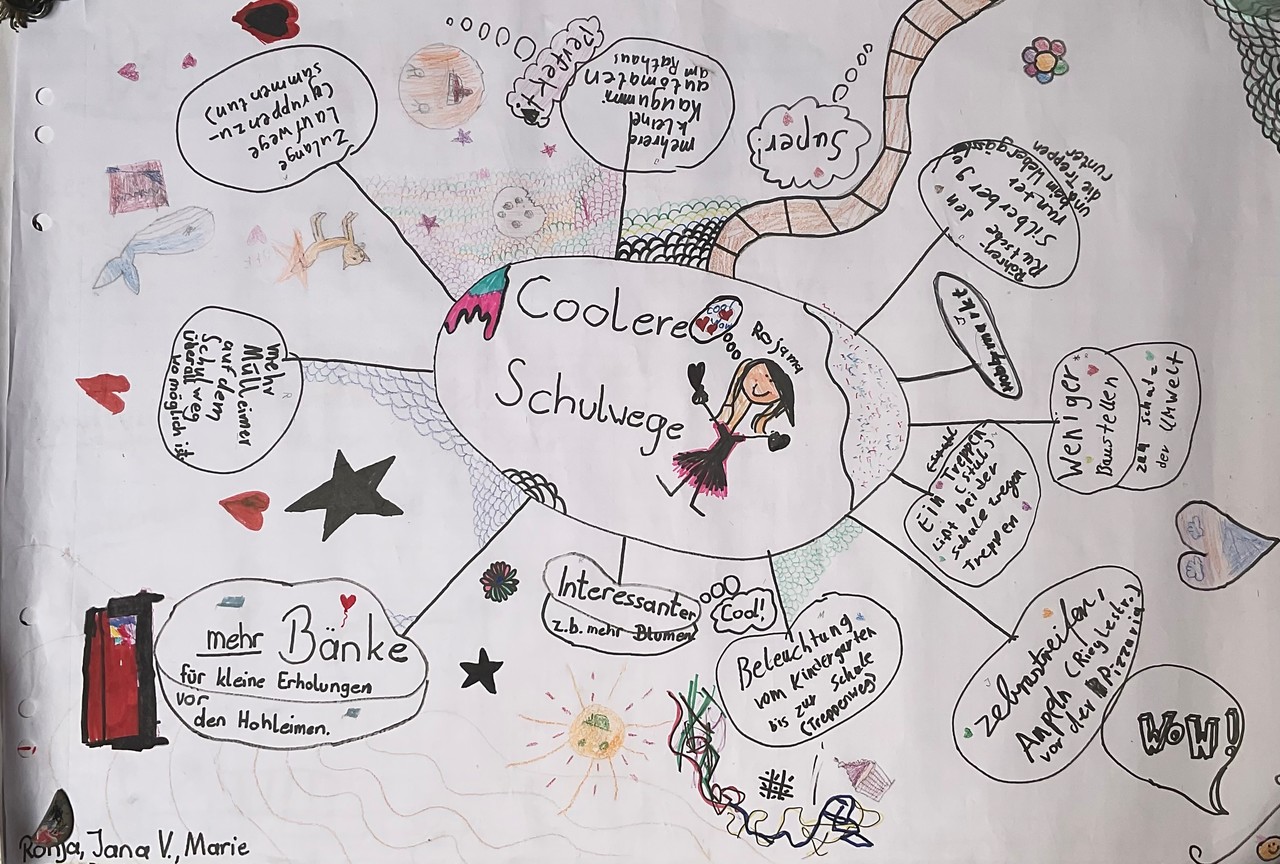 Coolere
Schulwege
Rojama
Zulange
Laufwege
(gruppen zu-
sammentun)
Perfekt!
mehrere
kleine
Kaugummi
automaten
am Rathaus
Super!
Röhren-
Rutsche
den
Silberberg
runter
und beim Uebergang
die Treppen
runter
Weniger
Baustellen
zum schutz
der UMWelt
Ein Treppen
(stuhl)
Lift bei der
Schule wegen
Treppen
Zebrastreifen,
Ampeln (Ringleitstr.)
vor der Pizzaria
WoW!
Beleuchtung
vom Kindergarten
bis zur Schule
(Treppenweg)
#
Cool!
Interessanter
z.b. mehr Blumen
mehr Bänke
für kleine Erholungen
vor
den Hohleimen.
mehr
Mülleimer
auf dem
Schulweg
überall
wo möglich ist
Ronja, Jana V., Marie